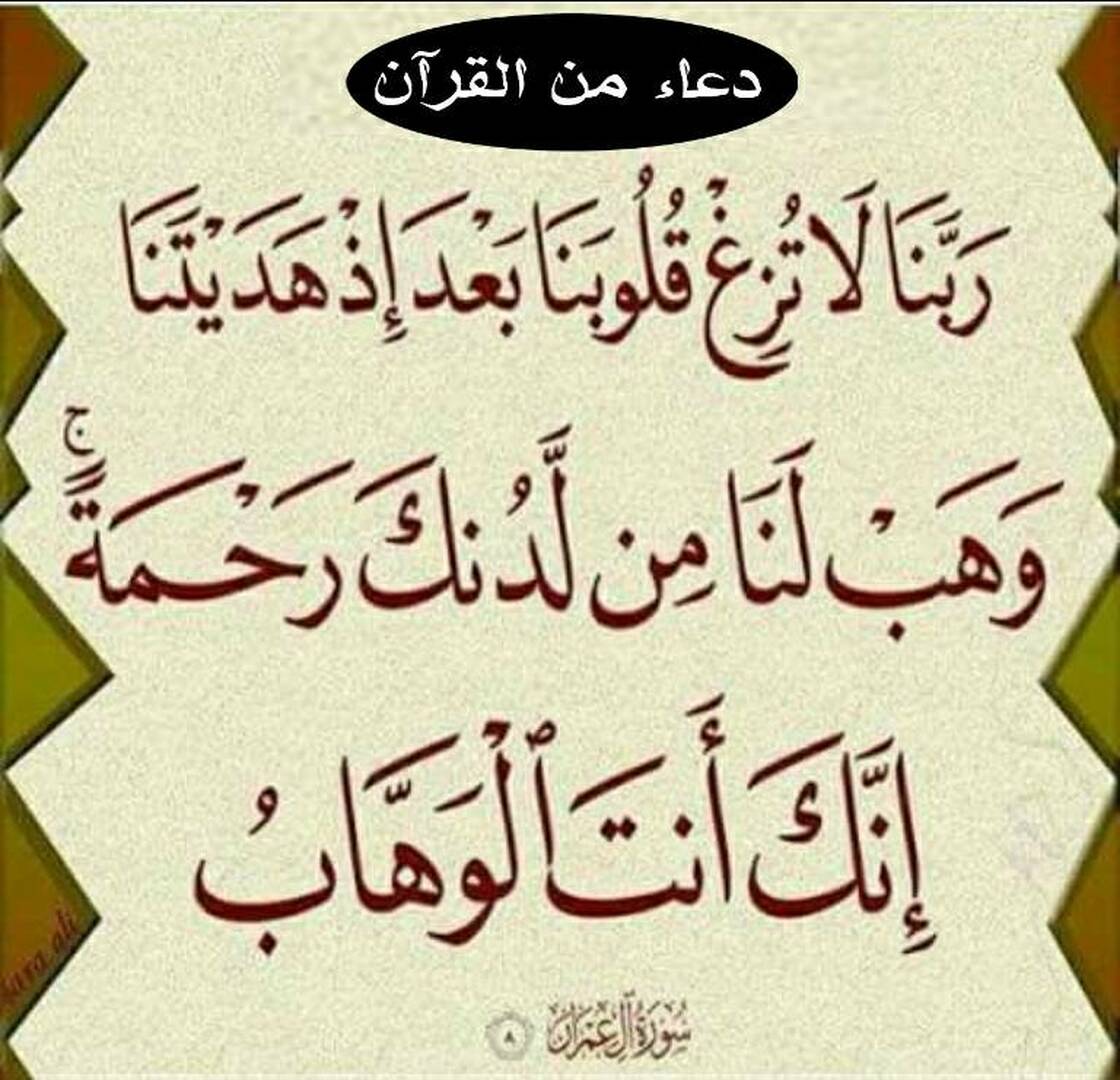 دعاء من القرآن
رَبَّنَا لَا تُزِغْ قُلُوبَنَا بَعْدَ إِذْ هَدَيْتَنَا
وَهَبْ لَنَا مِن لَّدُنكَ رَحْمَةً ۚ
إِنَّكَ أَنتَ ٱلْوَهَّابُ
سُورَةُ آلِ عِمْرَانَ ٨